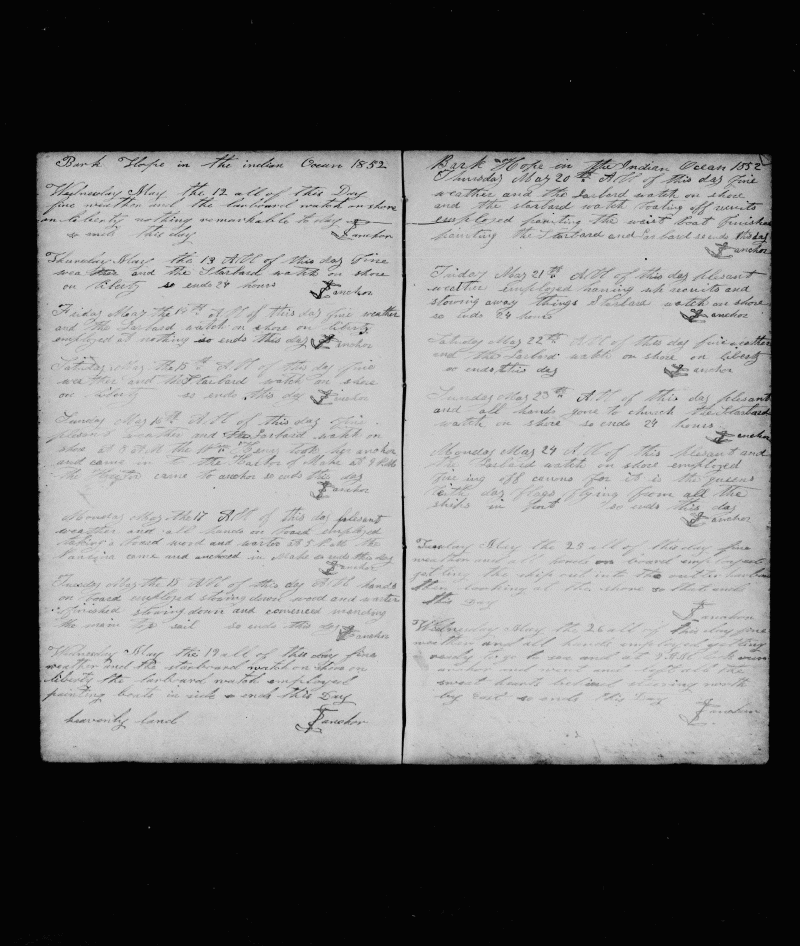 Bark Hope in the indian Ocean 1852
Wednesday May the 12 all of this Day
fine weather and the larboard watch on shore
on liberty nothing remarkable to day
so ends this day anchor
Thursday May the 13 All of this day fine
weather and the Starbard watch on shore
on liberty so ends 24 hours anchor
Friday May the 14th All of this day fine weather
and the Larbard watch on shore on liberty
employed at nothing so ends this day anchor
Satuday May the 15th All of this day fine
weather and the Starbard watch on shore
on liberty so ends this day anchor
Sunday May 16th All of this day fine
plesant weather and the Larbard watch on
shore at 8 AM the took her anchor
and came in to the Harbor of Mahe at
The came to anchor so ends this day
anchor
Monday May the 17 All of this day plesant
weather and all hands on board employed
board wood and warter at 5 P.M. the
came and anchord in Mahe so ends this day
anchor
Tuesday May the 18 All of this day All hands
on board employed stowing down wood and warter
finished stowing down and comenced mending
the main top sail so ends this day anchor
Wednesday May the 19 all of this day fine
weather and the starboard watch on Shore on
liberty the larboard watch employed
painting boats in side so ends this Day
heavenly land anchor
Bark Hope in the Indian Ocean 1852
Thursday May 20th All of this day fine
weather and the Larbard watch on shore
and the starbard watch boating off recruits
employed painting the waist boat finished
painting the Starbard and Larbard so ends this day
anchor
Friday May 21th All of this day plesant
weather employed having up recruits and
stowing away things Starbard watch on shore
so ends 24 hours anchor
Satuday May 22th All of this day fine weather
and the Larbard watch on shore on liberty
so ends this day anchor
Sunday May 23th All of this day plesant
and all hands gone to church the Starbard
watch on shore so ends 24 hours
anchor
Monday May 24 All of this plesant and
the Larbard watch on shore employed
fireing off canons for it is the queens
birth day flags flying from all the
ships in port so ends this day
anchor
Tuesday May the 25 all of this day fine
weather and all hands on board employed
getting the ship out into the outer harbor
then looking at the shore so that ends
this Day
anchor
Wednesday May the 26 all of this day fine
weather and all hands employed getting
ready to go to sea and at 3
anchor and went and left all the
sweet hearts behind stearing north
by East so ends this Day
anchor